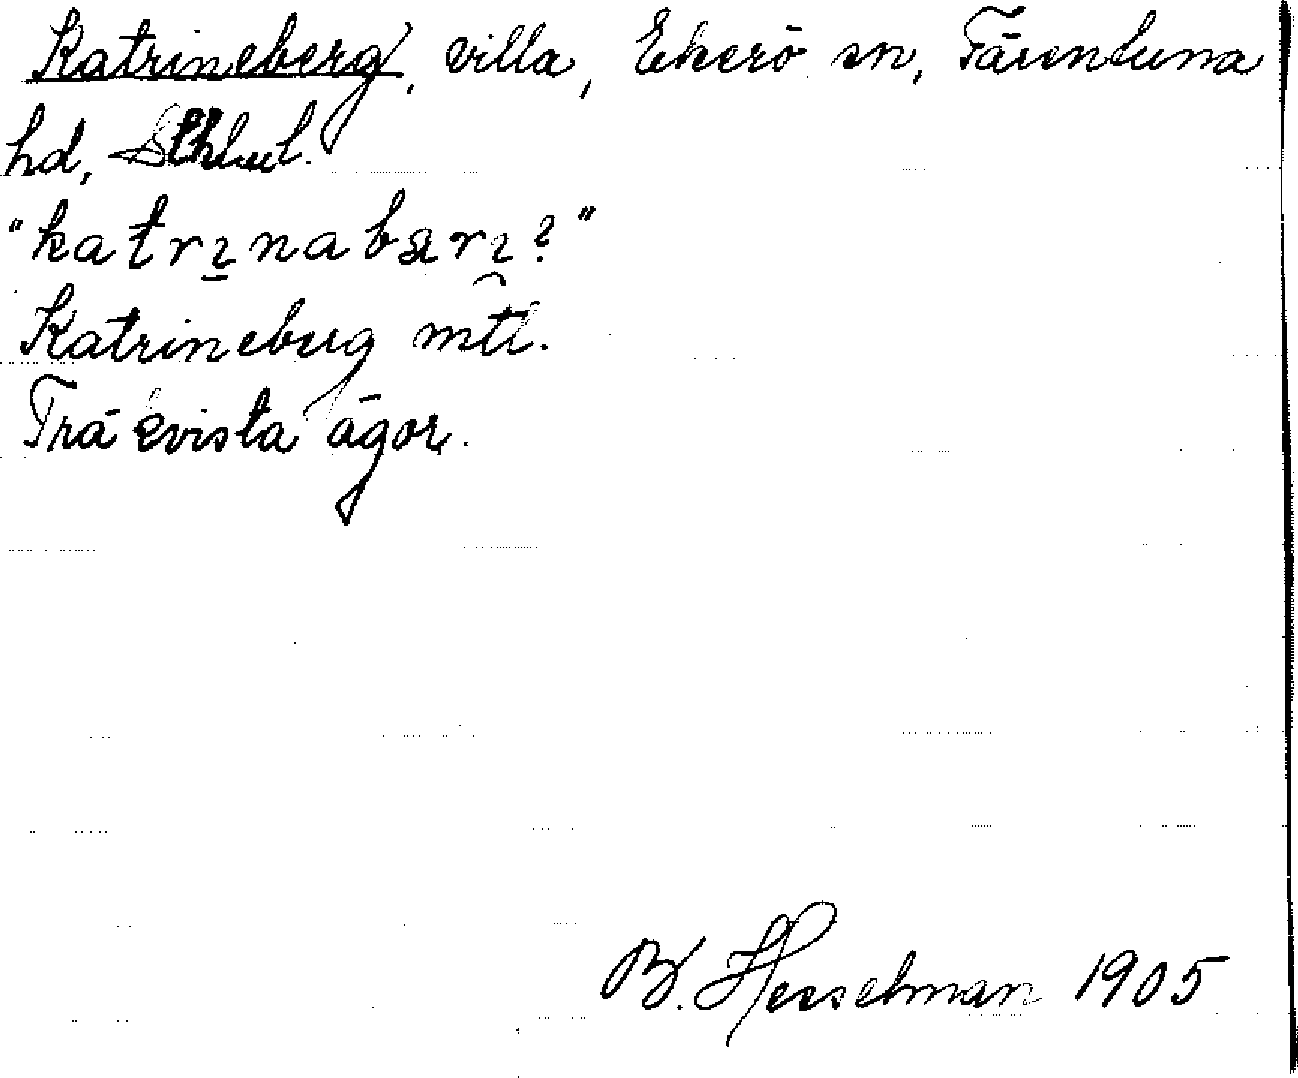 Katrineberg, villa, Ekerö sn, Färentuna
hd, Sthlm l.
"katrɪnabærɪ̯?"
Katrineberg mtl.
Trä kvista ägor.
B. Hesselman 1905